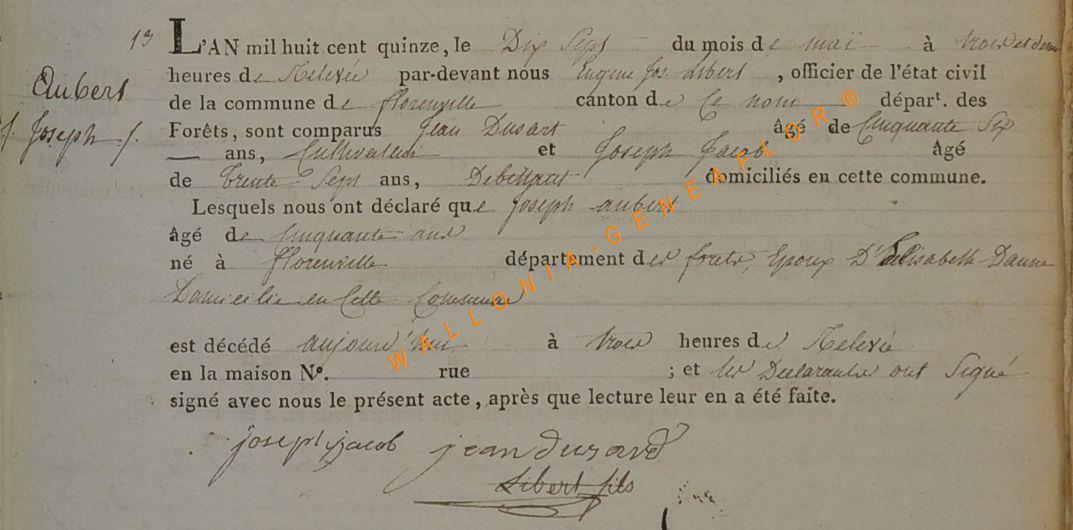 13
Aubert
Joseph
L'AN mil huit cent quinze, le Dix Sept du mois de mai à trois et demi
heures de Relevée par-devant nous Eugene Jos. Libert, officier de l'état civil
de la commune de florenville canton de Ce nom départ. des
Forêts, sont comparus Jean Dusart âgé de Cinquante Sip
ans, Cultivateur et Joseph Jacob âgé
de trente-Sept ans, Debittant domiciliés en cette commune.
Lesquels nous ont déclaré que Joseph aubert
âgé de Cinquante ans
né à florenville département des forets, Epoux D'Elisabeth Danne
Domicilié en Cette Commune
est décédé aujourd'hui à trois heures de Relevée
en la maison N°. rue ; et les Declarants ont Signé
signé avec nous le présent acte, après que lecture leur en a été faite.
joseph jacob jean dusard
Libert fils
WALLONIA-GENEAFLOR®